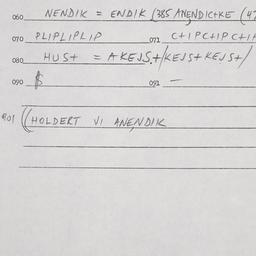 060 NENDIK = ENDIK (385 ANENDICTKE (47
070 PLIPLIPLIP 071 C+IPC+IPC+IP
080 HUS+ = AKEJS.+/KEJS+KEJS+/
090 $ 091 —
801 ((HOLDERT VI ANENDIK